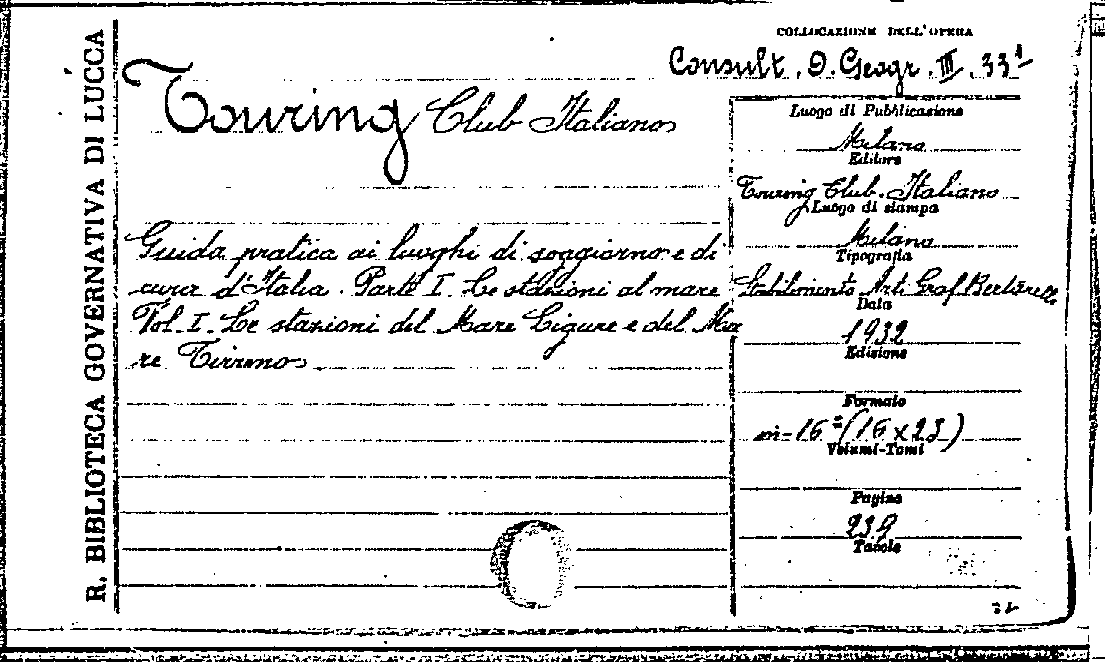 R. BIBLIOTECA GOVERNATIVA DI LUCCA
COLLOCAZIONE DELL'OPERA
Consult. D. Geogr. III. 33¹
Touring Club Italiano
Guida pratica ai luoghi di soggiorno e di
cura d'Italia. Parte I. Le stazioni al mare
Vol. I. Le stazioni del Mare Ligure e del Ma
re Tirreno
Luogo di Pubblicazione
Milano
Editore
Touring Club. Italiano
Luogo di stampa
Milano
Tipografia
Stabilimento Arti Graf. Bertarelli
Data
1932
Edizione
Formato
in-16° (16 x 23)
Volumi-Tomi
Pagine
239
Tavole